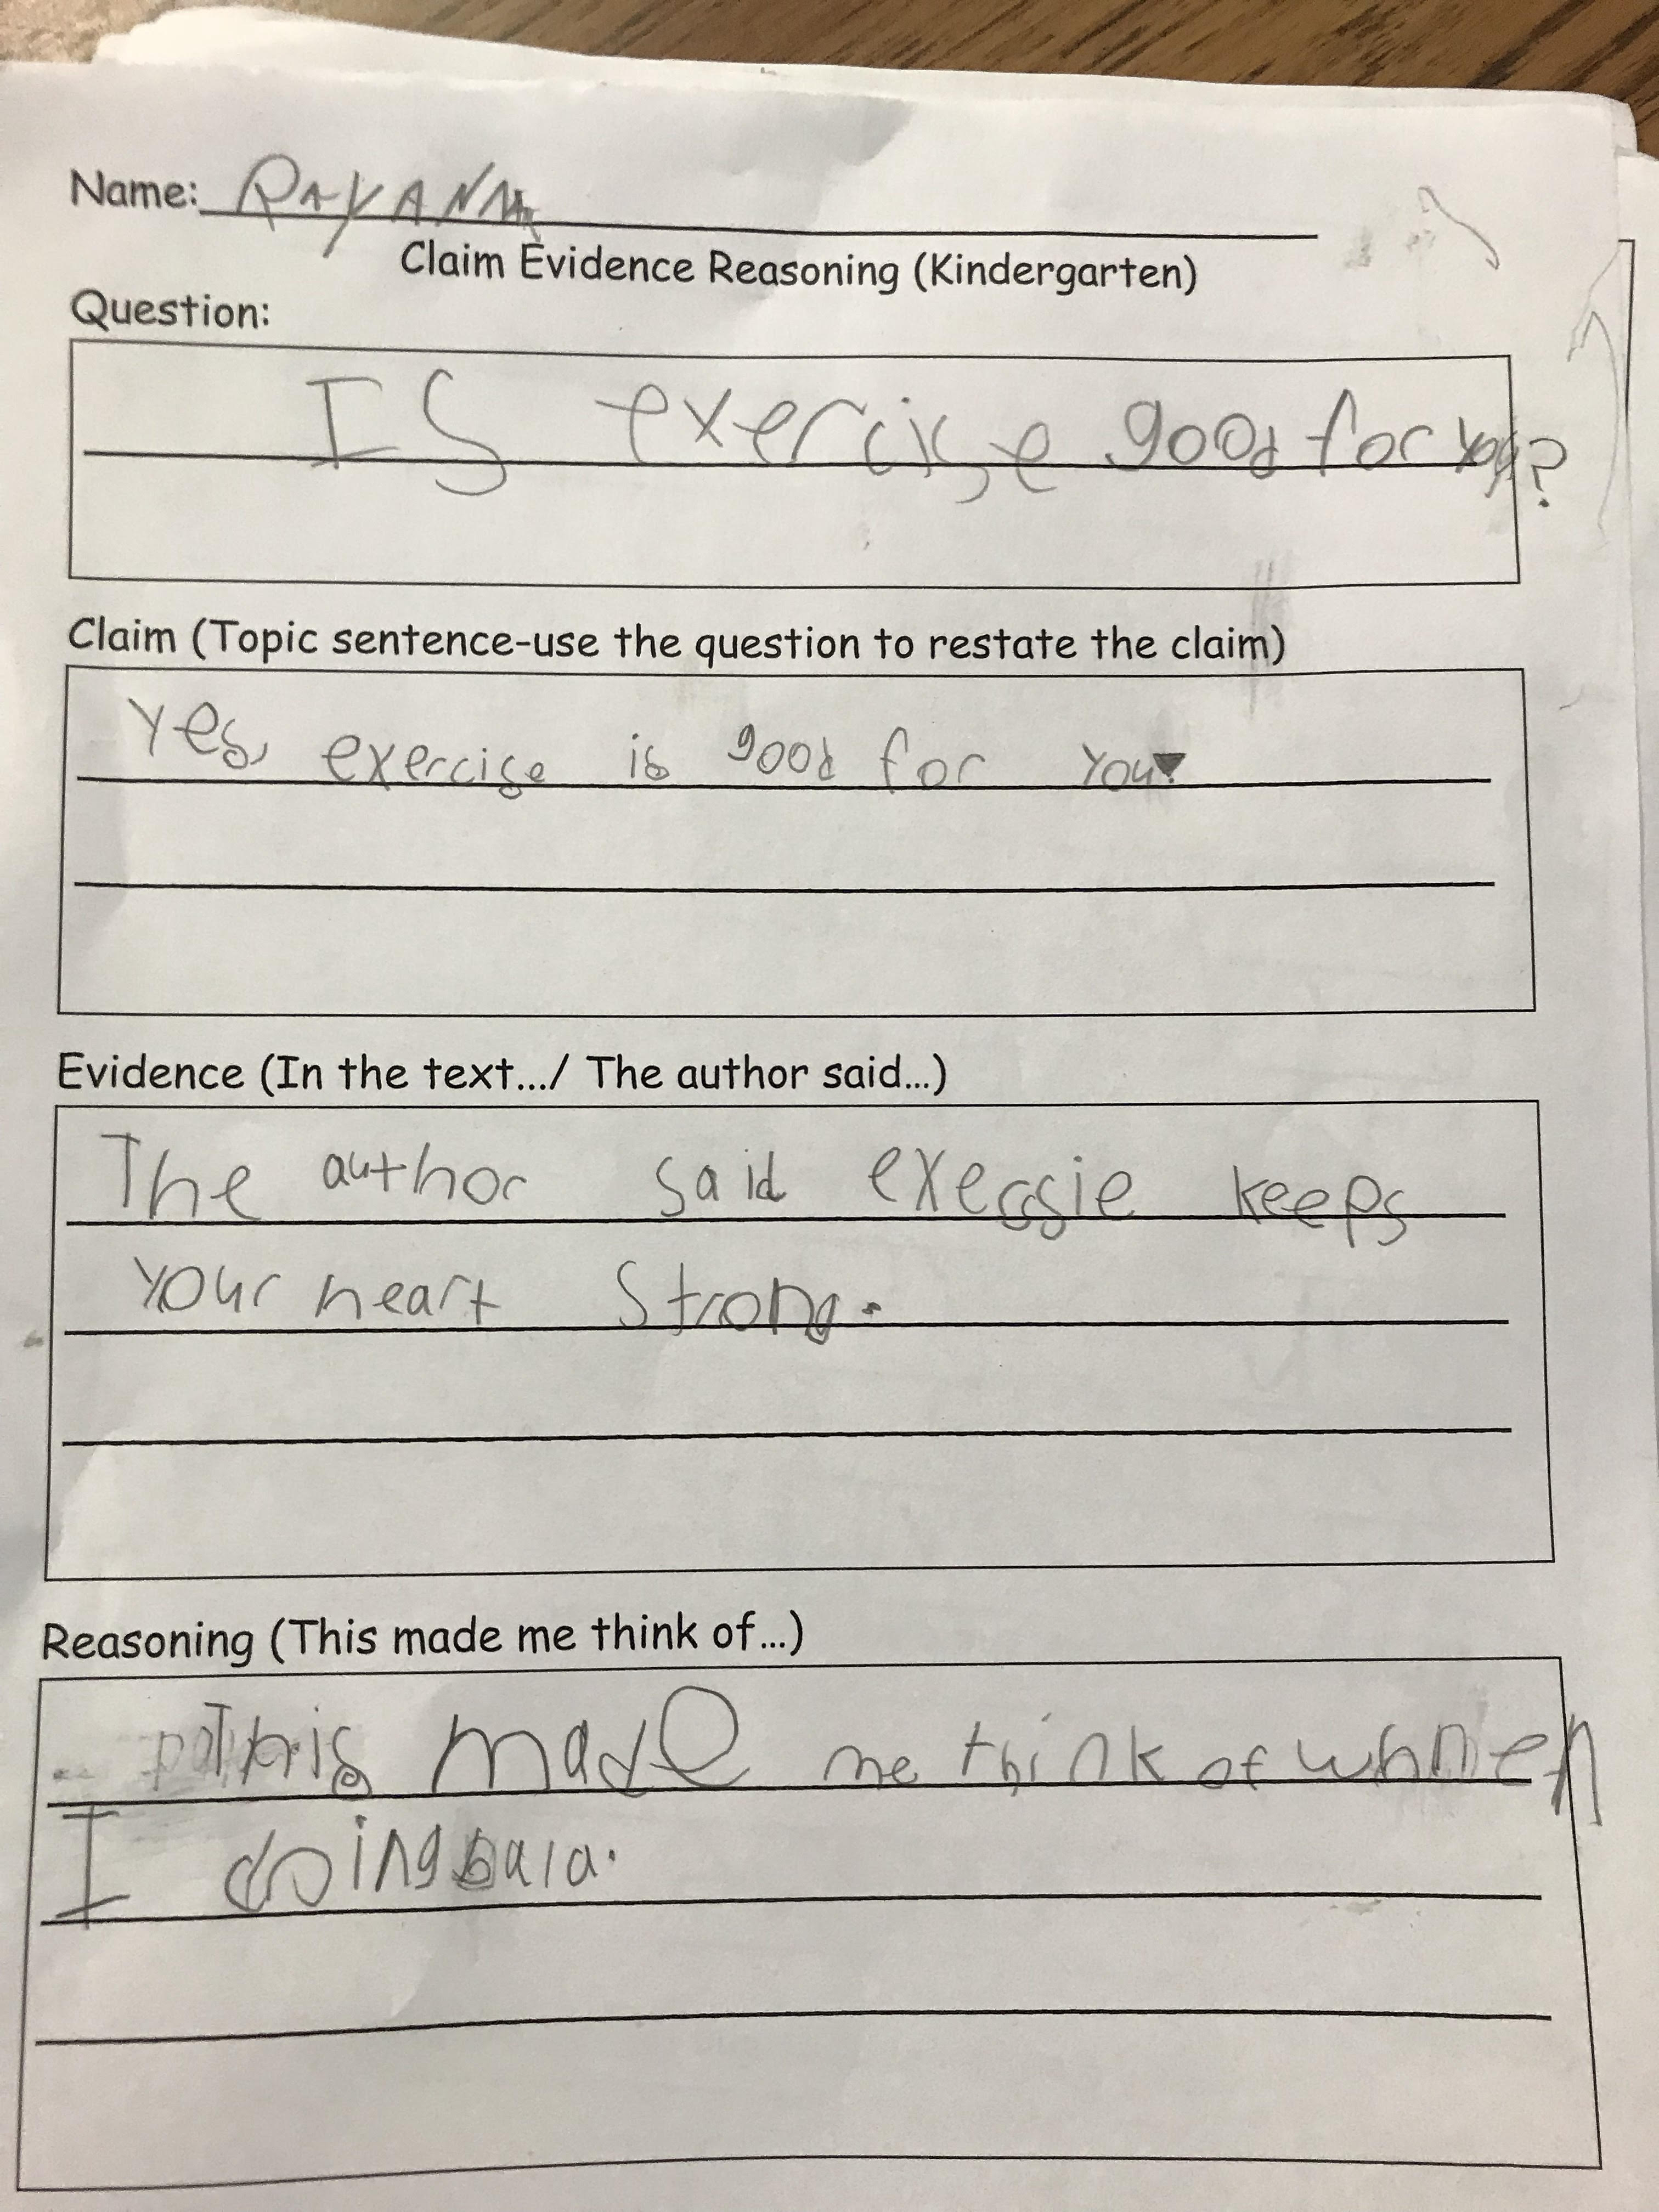 Name: RAYANN
Claim Evidence Reasoning (Kindergarten)
Question:
IS exercise good for you?
Claim (Topic sentence-use the question to restate the claim)
Yes, exercise is good for you.
Evidence (In the text.../ The author said...)
The author said exerssie keeps
your heart Strong.
Reasoning (This made me think of...)
This made me think of whnen
I doing bala.